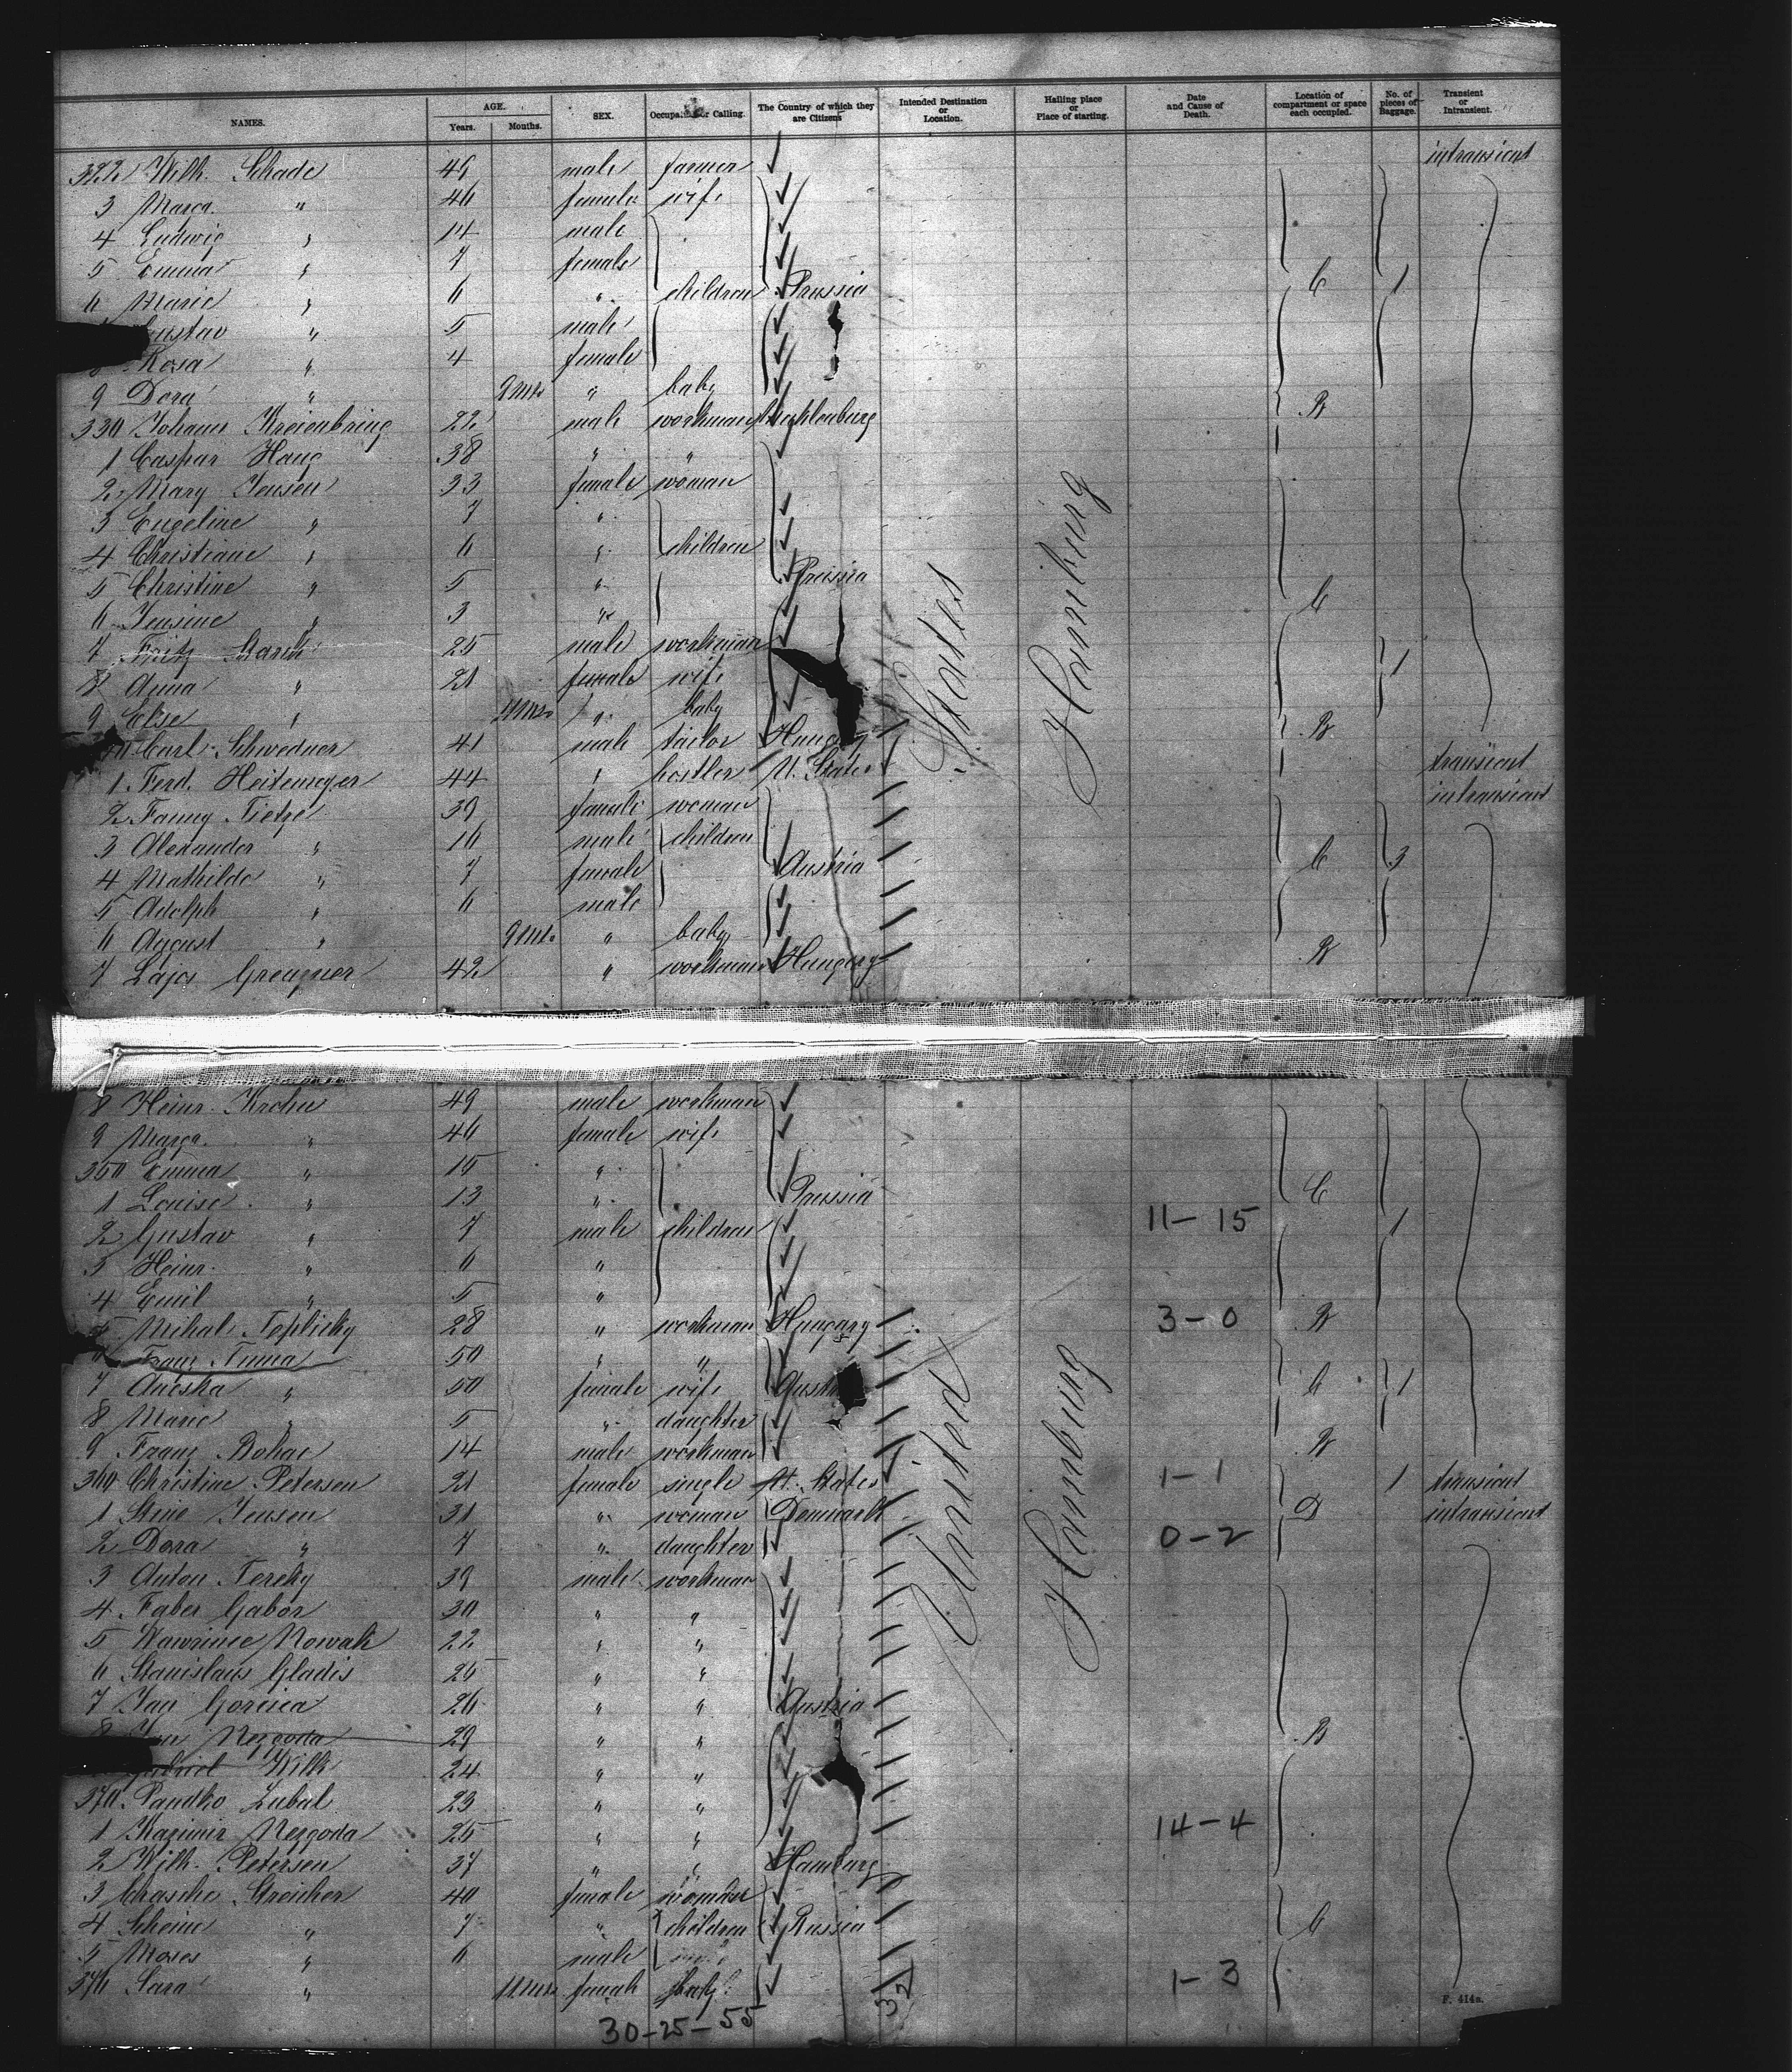 NAMES. AGE. Years. Months. SEX. Occupa or Calling. The Country of which they are Citizens Intended Destination or Location. Hailing place or Place of starting. Date and Cause of Death. Location of compartment or space each occupied. No. of pieces of Baggage. Transient or Intransient.
322 Wilh. Schade 49 male farmer intransient
3 Marga. " 46 female wife
4 Ludwig " 14 male
5 Emma " 7 female
6 Marie " 6 " children Prussia C 1
ustav " 5 male
8 Rosa " 4 female
9 Dora " 9 mts " baby
330 Johann Kreienbring 22 male workman Mecklenburg R
1 Caspar Haug 38 " "
2 Mary Jensen 33 female woman
3 Engeline " 7 "
4 Christiane " 6 " children
5 Christine " 5 " Prussia
6 Jensine " 3 " C
7 Fritz 25 male workman 1
8 Anna " 21 female wife
9 Elise " mts " baby
Carl Schwedner 41 male tailor Hungary R
1 Ferd. Heitemeyer 44 " hostler U. States transient
2 Fanny Tietze 39 female woman intransient
3 Alexander " 16 male children
4 Mathilde " 7 female Austria C 3
5 Adolph " 6 male
6 August " 9 mts. " baby
7 Lajos 42 " workman Hungary R
8 Heinr. Krohn 49 male workman
9 Marga. " 46 female wife
350 Emma " 15 "
1 Louise " 13 " Prussia C
2 Gustav " 7 male children 11-15 1
3 Heinr. " 6 "
4 Emil " 5 "
5 Mihal Teplicky 28 " workman Hungary 3-0 R
Franz Tuma 50 " "
7 Aneska " 50 female wife Aust C 1
8 Marie " 5 " daughter
9 Franz Bohac 14 male workman R
360 Christine Petersen 21 female single U. States 1-1 1 transient
1 Stine Jensen 31 " woman Denmark D intransient
2 Dora " 7 " daughter 0-2
3 Anton 39 male workman
4 Faber Gabor 30 " "
5 Nowak 22 " "
6 Stanislaus Gladis 25 " "
7 Jan Gorcica 26 " " Austria
8 Nezgoda 29 " " R
Wilk 24 " "
370 Zubal 23 " "
1 Kazimir Nezgoda 25 " " 14-4
2 Wilh. Petersen 37 " " Hamburg
3 Chasche Streicher 40 female woman
4 Scheine " 7 " children Russia C
5 Moses " 6 male
376 Sara " 11 mts female baby 1-3
United States
Hamburg
Hamburg
30-25-55
32
F. 414a.